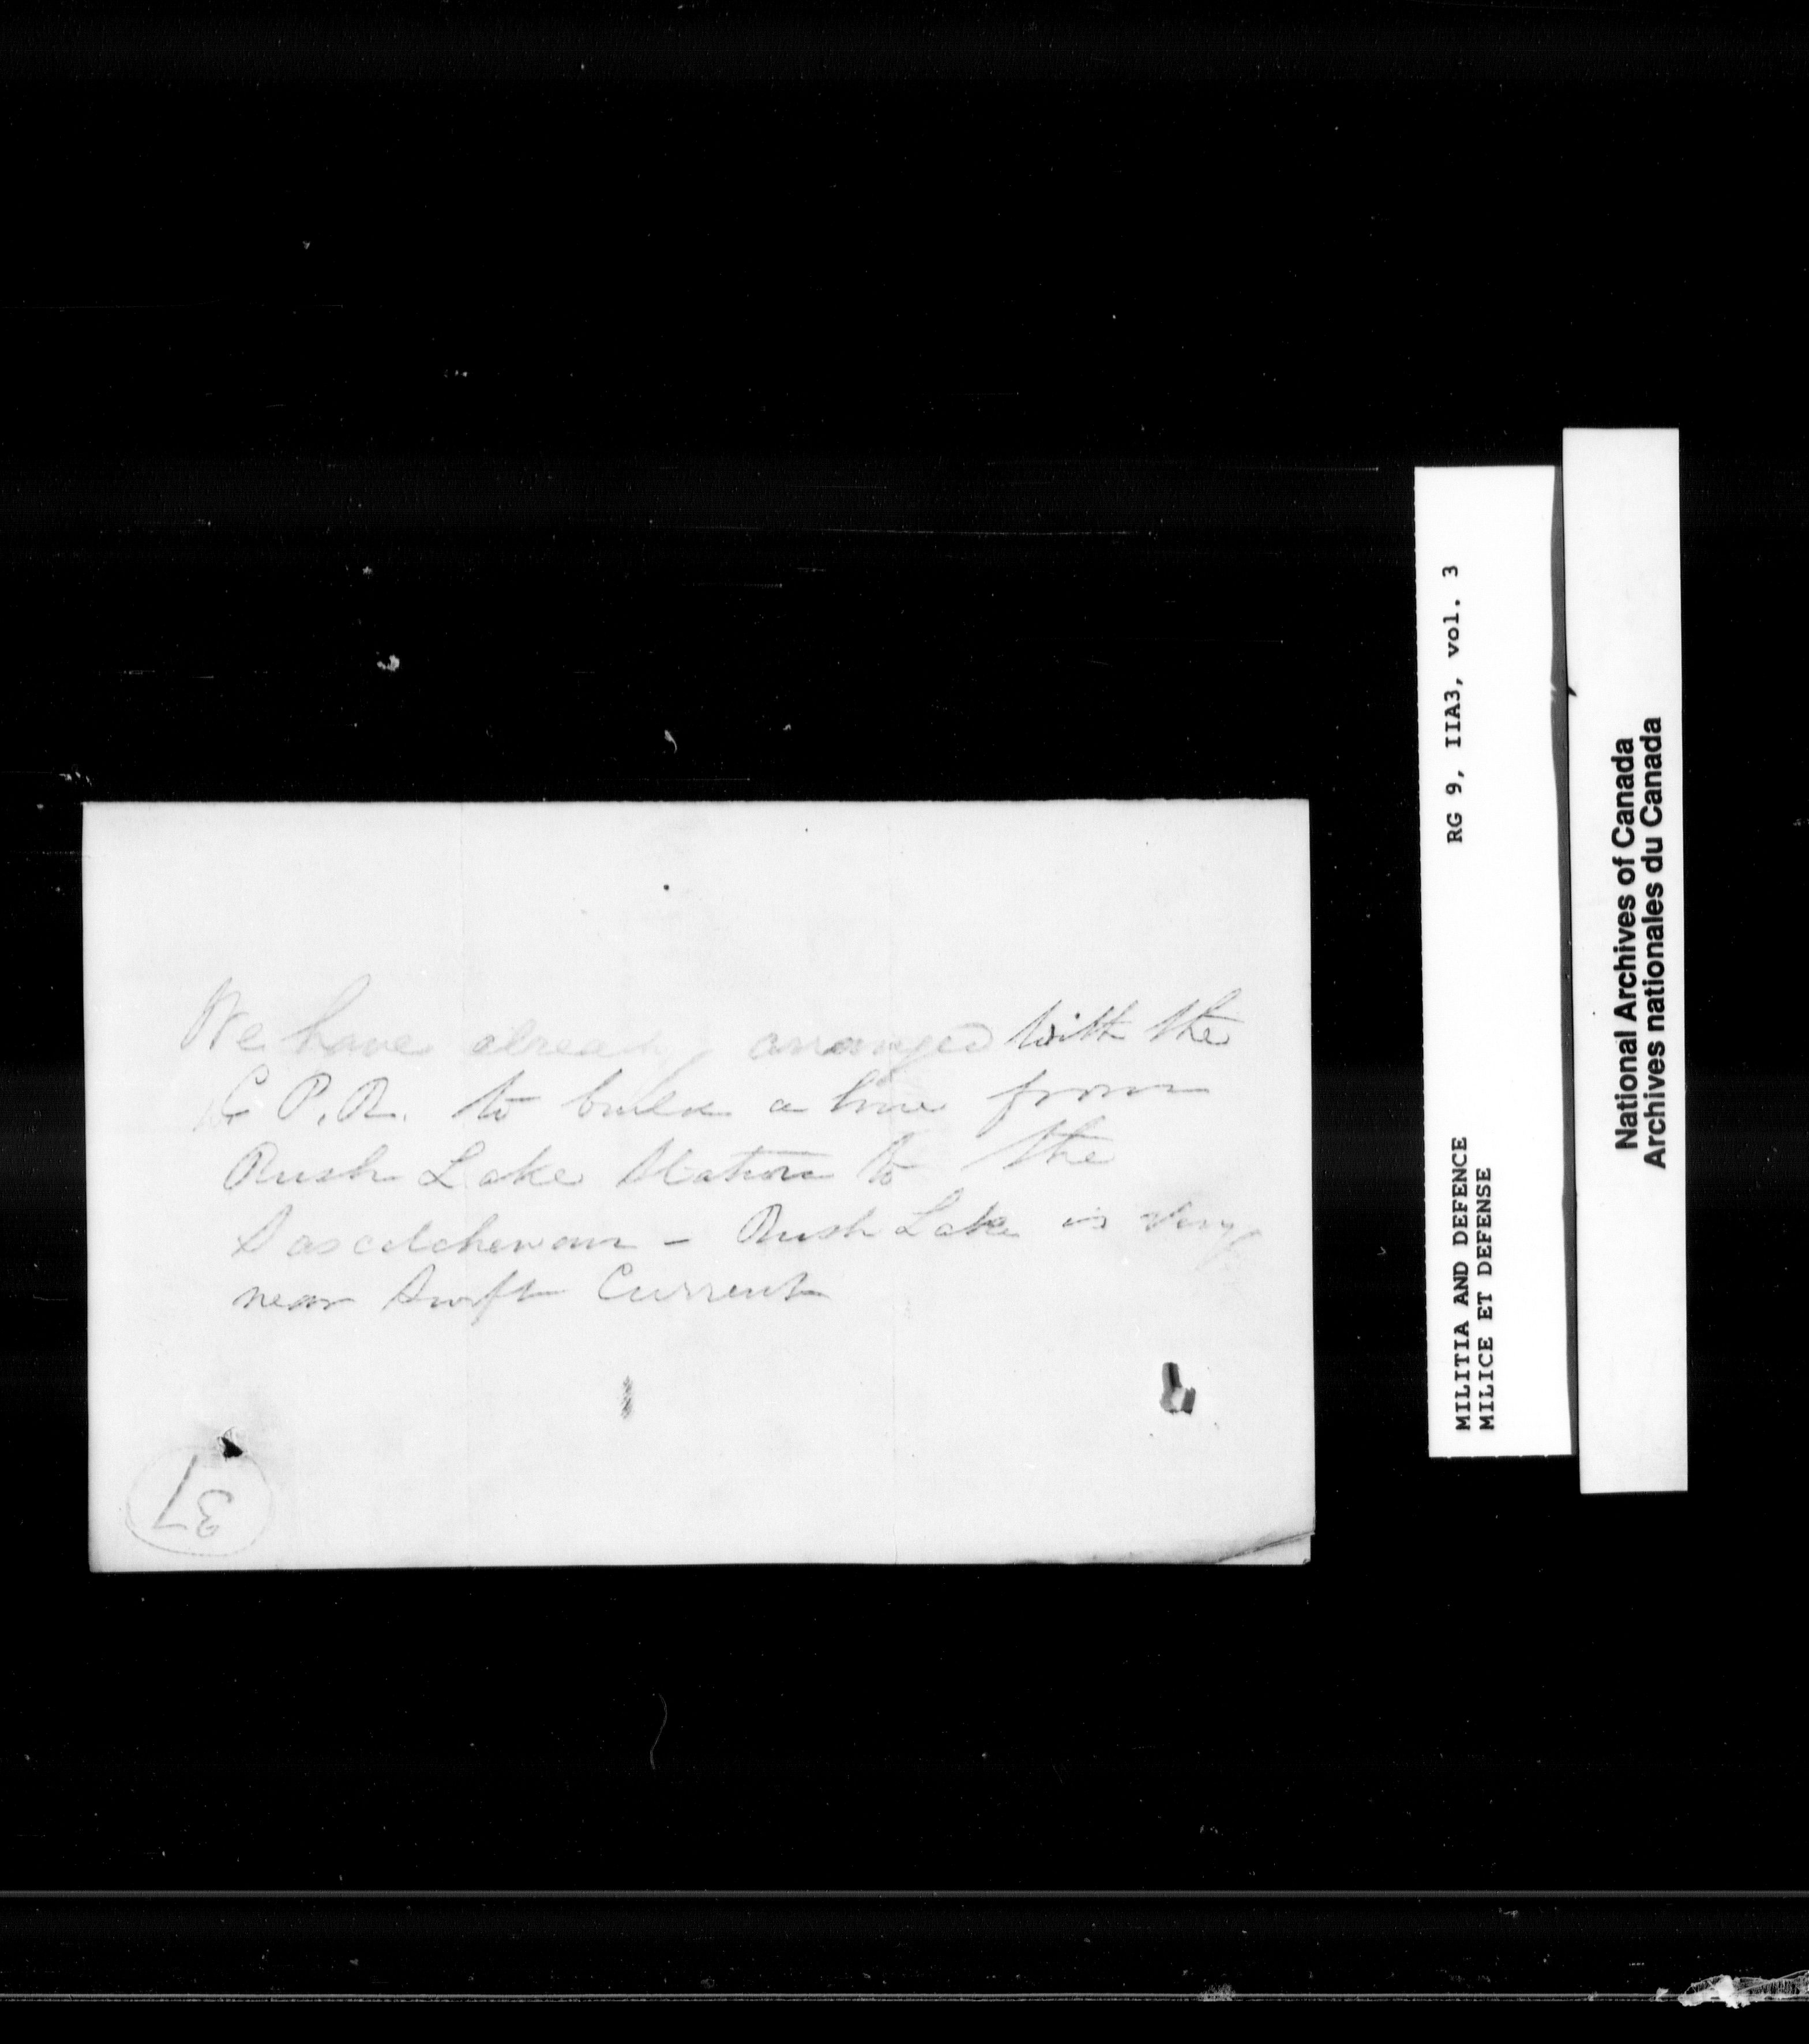 We have already arranged with the
C P.R. to build a line from
Rush Lake Station to the
Sascatchewan - Rush Lake is very
near Swift Current
37
MILITIA AND DEFENCE RG 9, IIA3, vol. 3
MILICE ET DEFENSE
National Archives of Canada
Archives nationales du Canada